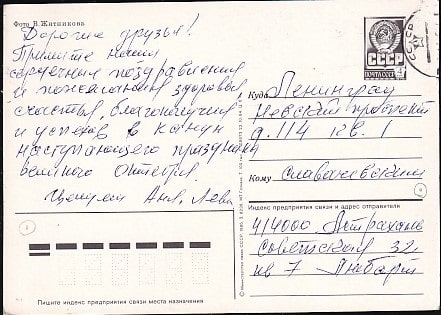 Фото В. Житникова
Дорогие друзья!
Примите наши
сердечные поздравления
и пожелания здоровья
счастья, благополучия
и успехов в канун
наступающего праздника
великого Октября.
Целуем Аня, Лева
ПОЧТА СССР
СССР
Куда Ленинград
Невский проспект
д. 114 кв. 1
Кому Славаневским
Индекс предприятия связи и адрес отправителя
414000 Астрахань
Советская 32
кв 7
Пишите индекс предприятия связи места назначения